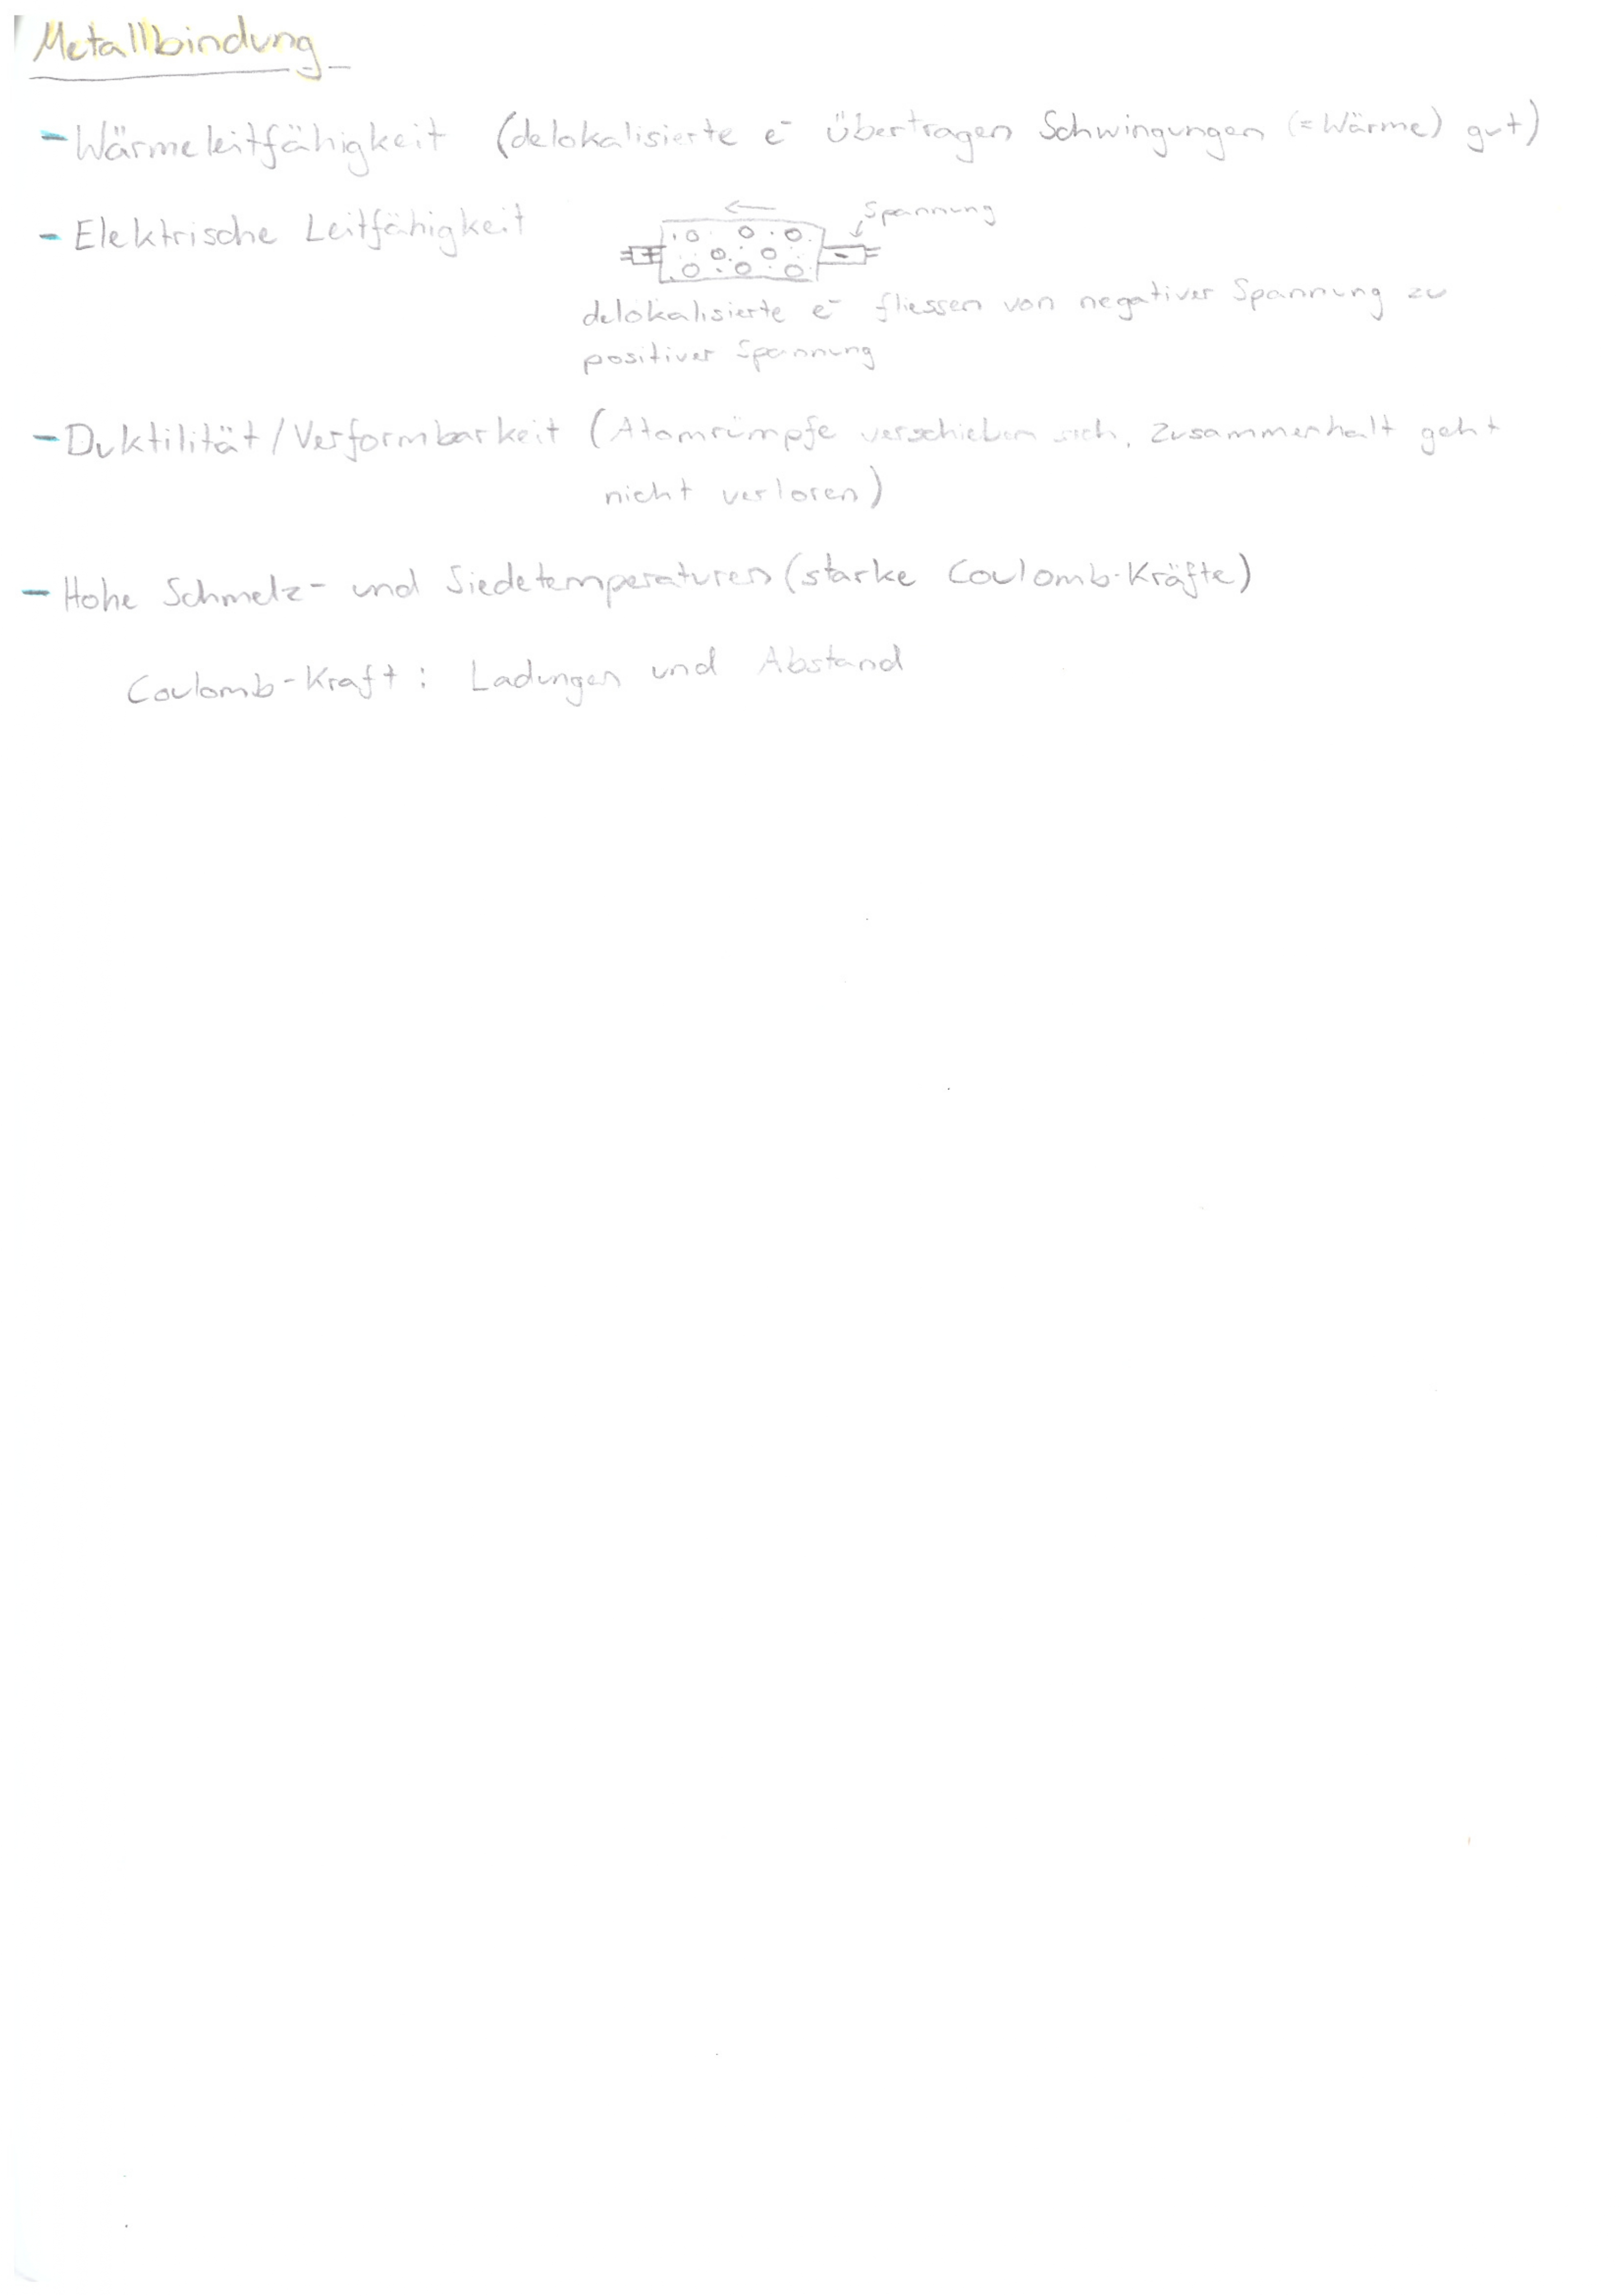 Metallbindung
- Wärmeleitfähigkeit (delokalisierte e⁻ übertragen Schwingungen (= Wärme) gut)
- Elektrische Leitfähigkeit
← Spannung
+ -
delokalisierte e⁻ fliessen von negativer Spannung zu
positiver Spannung
- Duktilität/Verformbarkeit (Atomrümpfe verschieben sich, Zusammenhalt geht
nicht verloren)
- Hohe Schmelz- und Siedetemperaturen (starke Coulomb-Kräfte)
Coulomb-Kraft: Ladungen und Abstand